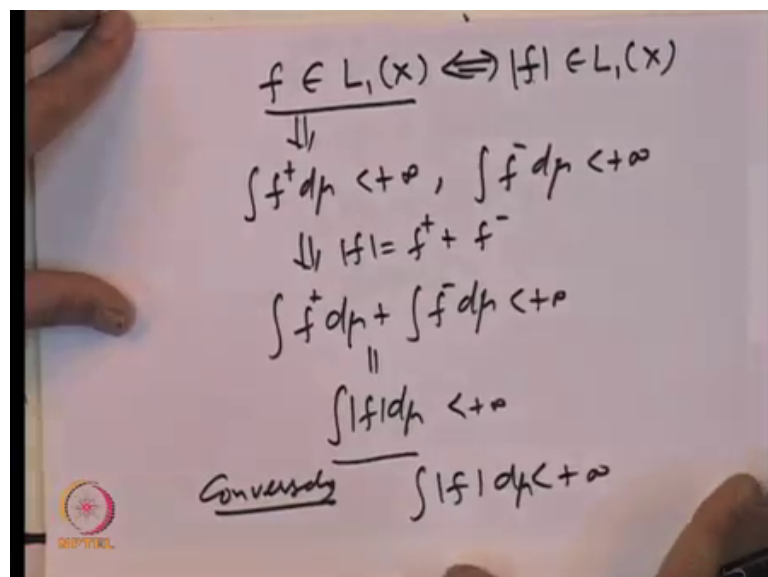 f ∈ L₁(X) ⇔ |f| ∈ L₁(X)
⇓
∫f⁺dμ < +∞, ∫f⁻dμ < +∞
⇓ |f| = f⁺ + f⁻
∫f⁺dμ + ∫f⁻dμ < +∞
||
∫|f|dμ < +∞
Conversely ∫|f|dμ < +∞
NPTEL